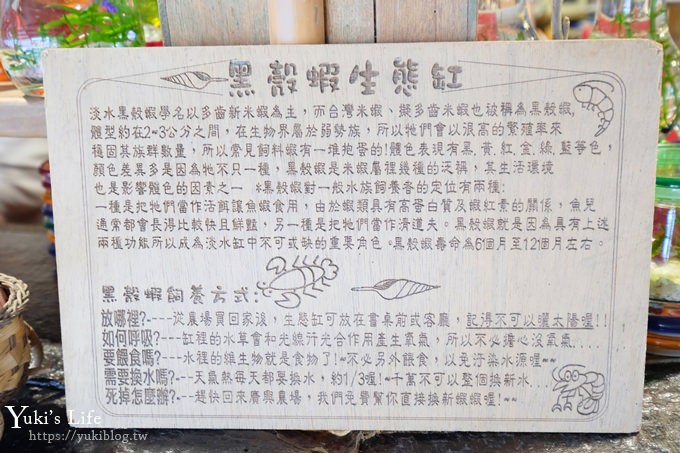 黑殼蝦生態缸
淡水黑殼蝦學名以多齒新米蝦為主，而台灣米蝦、擬多齒米蝦也被稱為黑殼蝦，
體型約在2~3公分之間，在生物界屬於弱勢族，所以牠們會以很高的繁殖率來
穩固其族群數量，所以常見飼料蝦有一堆抱蛋的!體色表現有黑、黃、紅、金、綠、藍等色，
顏色差異多是因為牠不只一種，黑殼蝦是米蝦屬裡幾種的泛稱，其生活環境
也是影響體色的因素之一 *黑殼蝦對一般水族飼養者的定位有兩種:
一種是把牠們當作活餌讓魚蝦食用，由於蝦類具有高蛋白質及蝦紅素的關係，魚兒
通常都會長得比較快且鮮豔，另一種是把牠們當作清道夫。黑殼蝦就是因為具有上述
兩種功能所以成為淡水缸中不可或缺的重要角色。黑殼蝦壽命為6個月至12個月左右。
黑殼蝦飼養方式:
放哪裡?---從農場買回家後，生態缸可放在書桌前或客廳，記得不可以曬太陽喔!!
如何呼吸?---缸裡的水草會和光線行光合作用產生氧氣，所以不必擔心沒氧氣....
要餵食嗎?---水裡的維生物就是食物了!~不必另外餵食，以免汙染水源喔~~
需要換水嗎?---天氣熱每天都要換水，約1/3喔!~千萬不可以整個換新水...
死掉怎麼辦?---趕快回來廣興農場，我們免費幫你直接換新蝦蝦喔!~~
Yuki's Life
https://yukiblog.tw